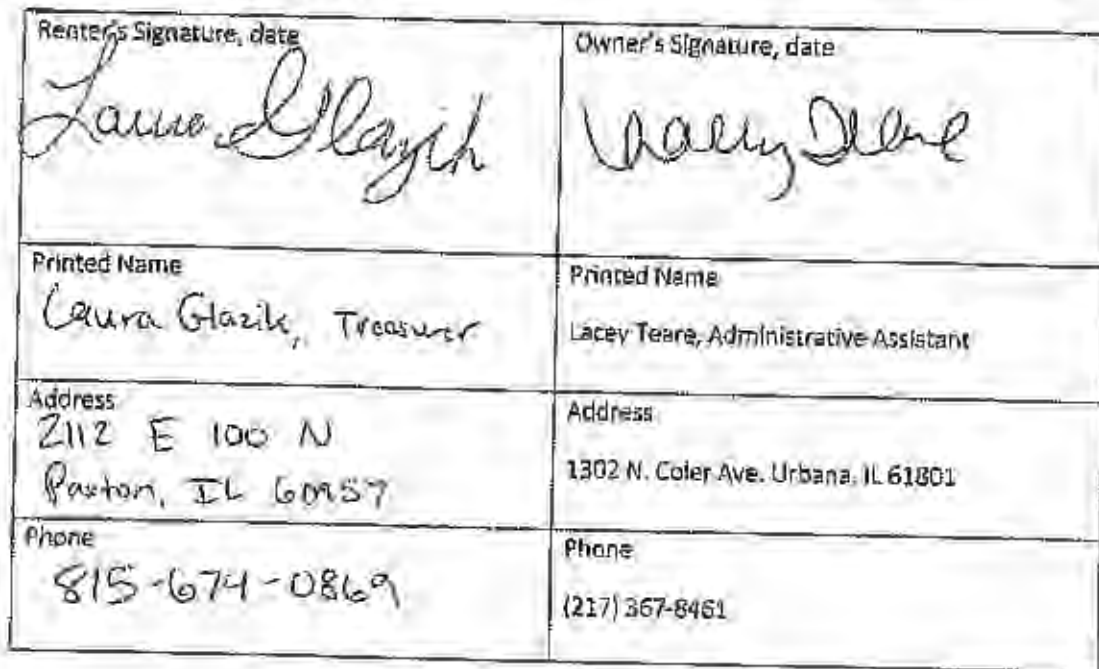 Renter's Signature, date
Laura Glazik
Owner's Signature, date
Lacey Teare
Printed Name
Laura Glazik, Treasurer
Printed Name
Lacey Teare, Administrative Assistant
Address
2112 E 100 N
Paxton, IL 60957
Address
1302 N. Coler Ave. Urbana, IL 61801
Phone
815-674-0869
Phone
(217) 367-8461